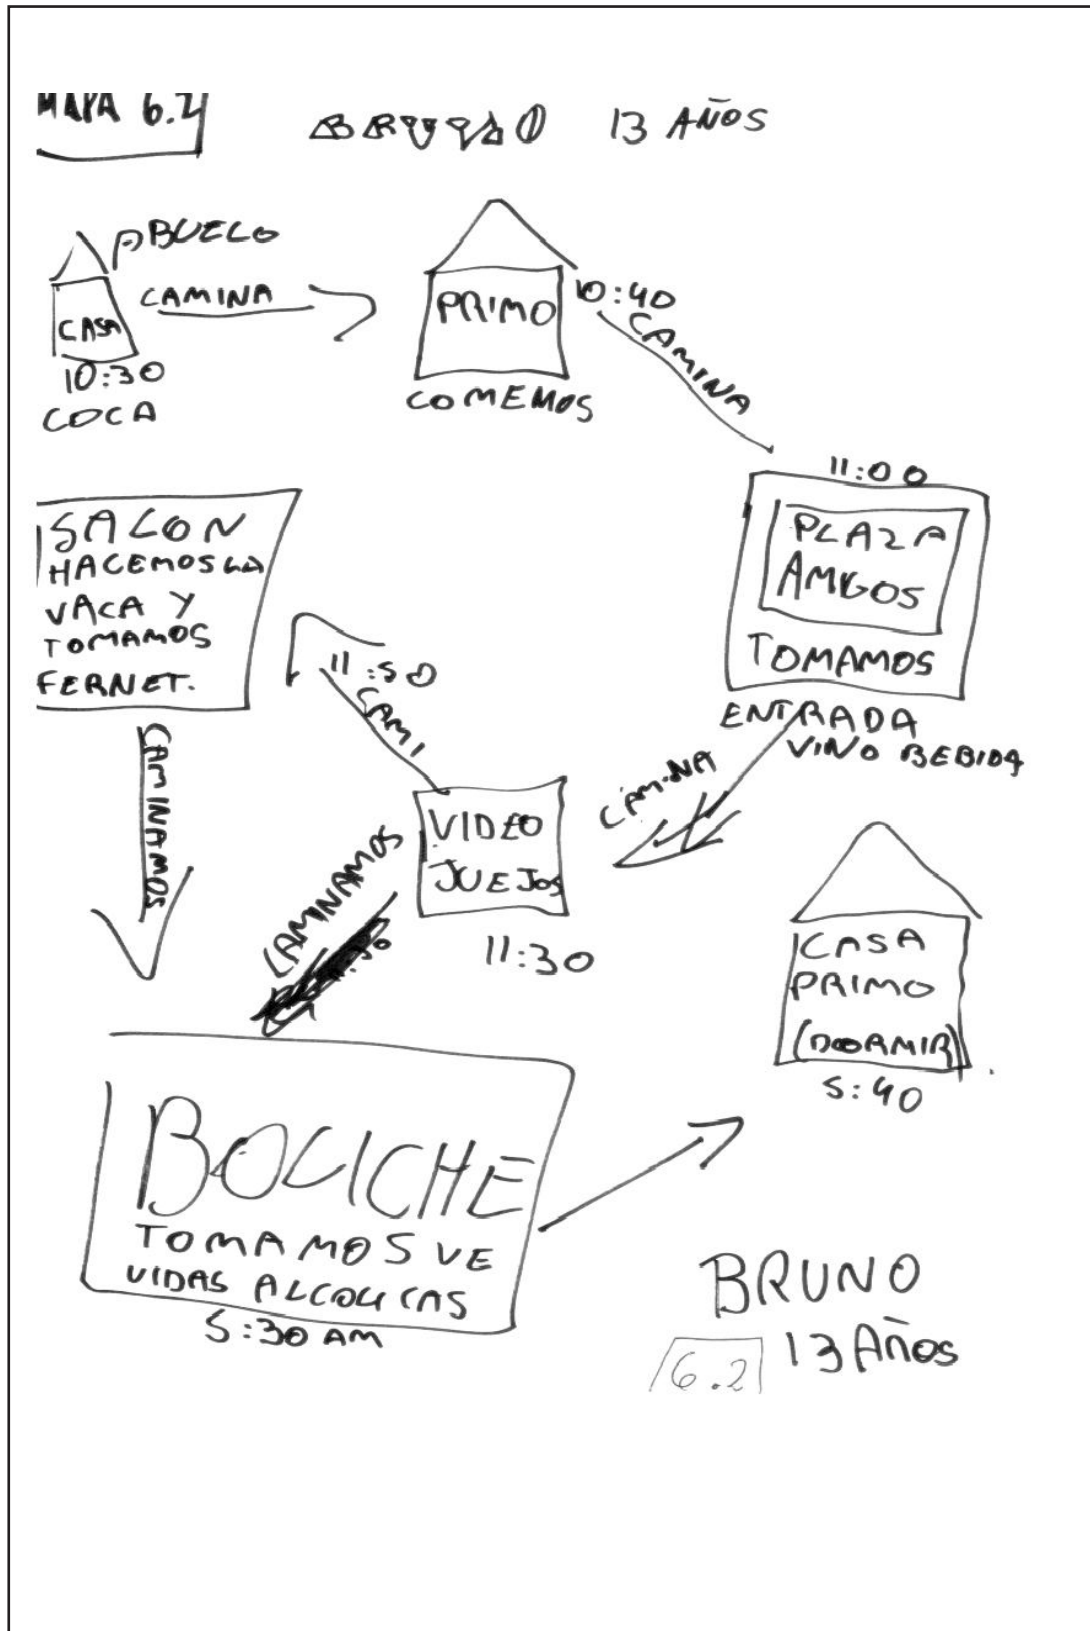 MAPA 6.2
BRUNO 13 AÑOS
ABUELO
CAMINA
CASA
10:30
COCA
PRIMO
COMEMOS
10:40
CAMINA
11:00
PLAZA
AMIGOS
TOMAMOS
ENTRADA
VINO BEBIDA
CAMINA
VIDEO
JUEJOS
11:30
11:50
CAMI
SALON
HACEMOS LA
VACA Y
TOMAMOS
FERNET.
CAMINAMOS
CAMINAMOS
BOLICHE
TOMAMOS VE
VIDAS ALCOLICAS
5:30 AM
CASA
PRIMO
(DORMIR)
5:40
BRUNO
13 Años
6.2